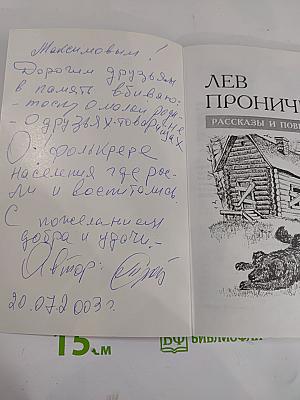 Максимовым!
Дорогим друзьям
в память
О друзьях-товарищах
О фольклере
населения где рос-
ли и воспитались.
С пожеланием
добра и удачи.-
Автор:
20.07.2003г.
ЛЕВ
ПРОНИЧ
РАССКАЗЫ И ПОВЕ
15см
БФ БИБЛИОФИЛ